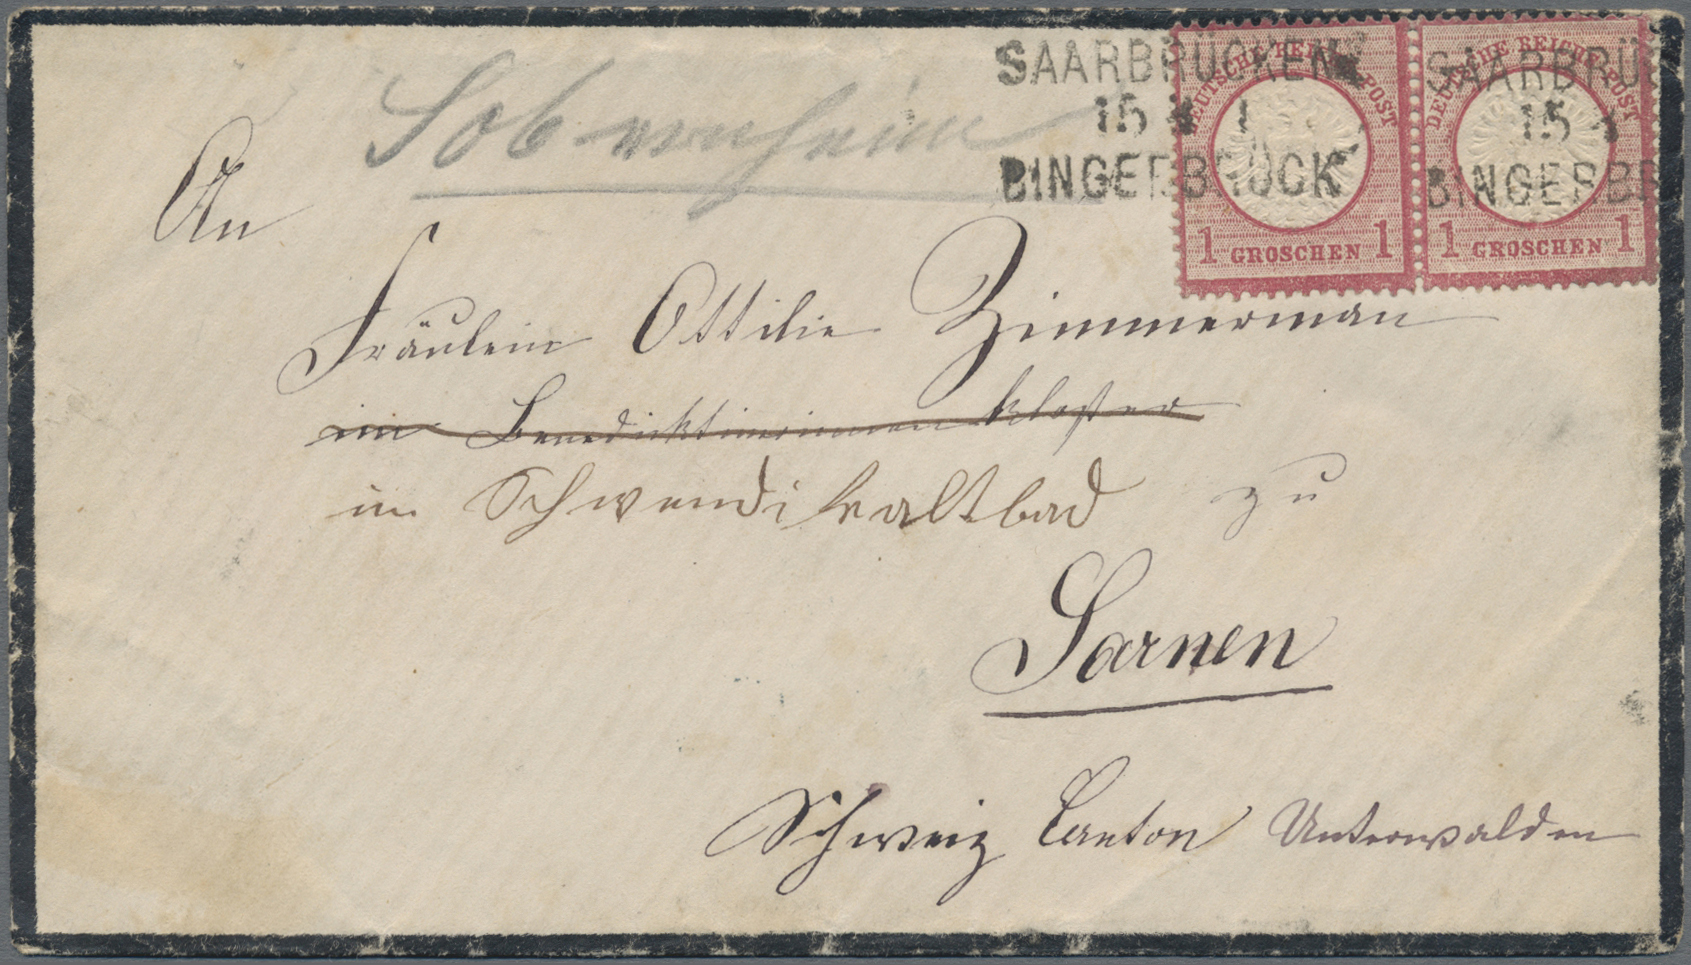 SAARBRÜCKEN
15 4 1
BINGERBRÜCK
SAARBRÜ
15
BINGERBR
DEUTSCHE REICHS-POST
1 GROSCHEN 1
DEUTSCHE REICHS-POST
1 GROSCHEN 1
Sobernheim
An
Fräulein Ottilie Zimmerman
im Benediktinerinnen kloster
im Schwendi Kaltbad zu
Sarnen
Schweiz Canton Unterwalden